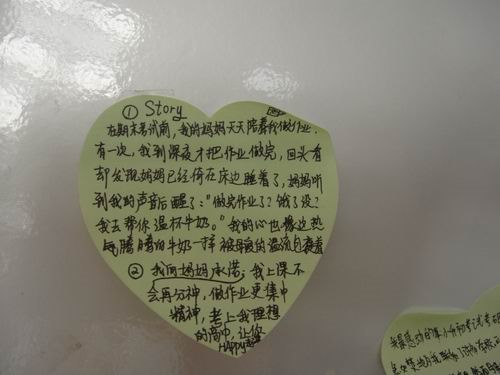 ① Story
在期末考试前，我的妈妈天天陪着我做作业.
有一次，我到深夜才把作业做完，回头看
却发现妈妈已经倚在床边睡着了，妈妈听
到我的声音后醒了："做完作业了？饿了没？
我去帮你温杯牛奶。"我的心也像这热
气腾腾的牛奶一样被母爱的温流包裹着
② 我向妈妈承诺：我上课不
会再分神，做作业更集中
精神，考上我理想
的高中，让你
HAPPY